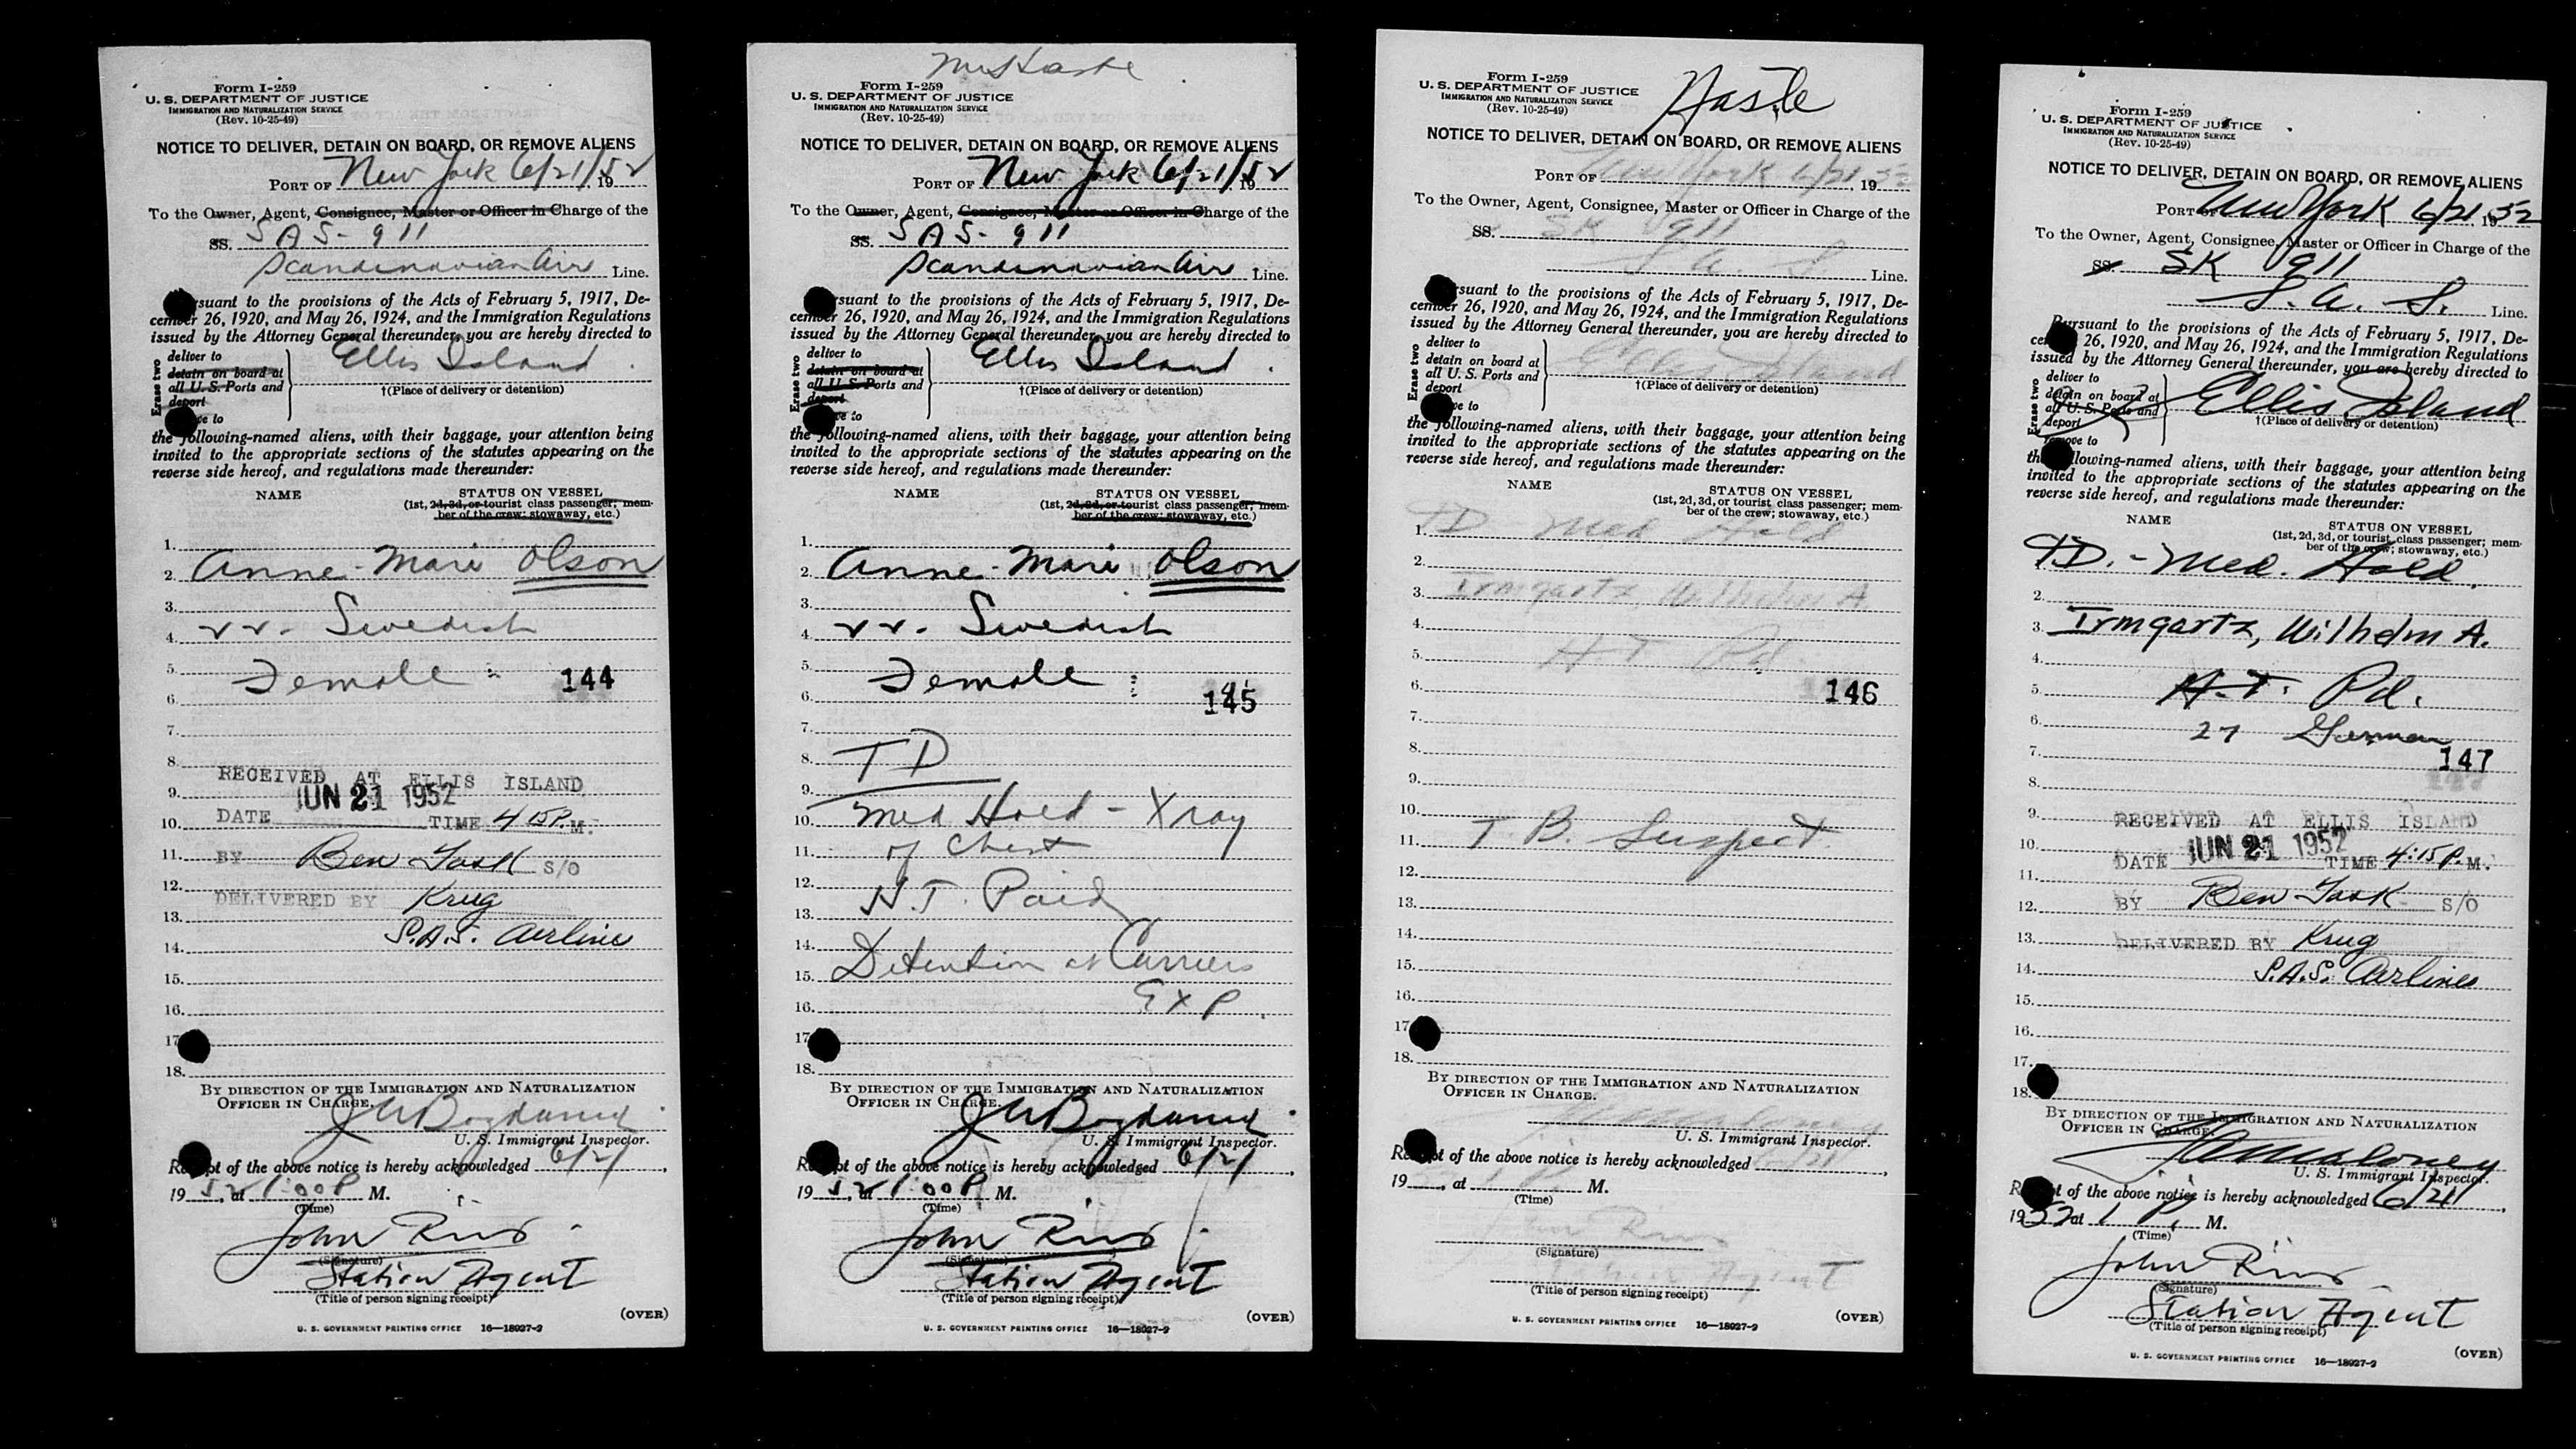 Form I-259
U. S. DEPARTMENT OF JUSTICE
IMMIGRATION AND NATURALIZATION SERVICE
(Rev. 10-25-49)
NOTICE TO DELIVER, DETAIN ON BOARD, OR REMOVE ALIENS
PORT OF New York 6/21/52 19
To the Owner, Agent, Consignee, Master or Officer in Charge of the
SS. SAS-911
Scandinavian Air Line.
Pursuant to the provisions of the Acts of February 5, 1917, De-
cember 26, 1920, and May 26, 1924, and the Immigration Regulations
issued by the Attorney General thereunder, you are hereby directed to
Erase two
deliver to
detain on board at
all U. S. Ports and
deport
remove to
Ellis Island
†(Place of delivery or detention)
the following-named aliens, with their baggage, your attention being
invited to the appropriate sections of the statutes appearing on the
reverse side hereof, and regulations made thereunder:
NAME STATUS ON VESSEL
(1st, 2d, 3d, or tourist class passenger; mem-
ber of the crew; stowaway, etc.)
1.
2. Anne-Mari Olson
3.
4. 22. Swedish
5. Female
144
6.
7.
8.
RECEIVED AT ELLIS ISLAND
9. JUN 21 1952
10. DATE TIME 4 15 P. M.
11. BY Ben S/O
12.
DELIVERED BY Krug
13.
S.A.S. Airline
14.
15.
16.
17.
18.
BY DIRECTION OF THE IMMIGRATION AND NATURALIZATION
OFFICER IN CHARGE.
U. S. Immigrant Inspector.
Receipt of the above notice is hereby acknowledged 6/21,
19 52, at 1:00 P M.
(Time)
John
(Signature)
Station Agent
(Title of person signing receipt)
(OVER)
U. S. GOVERNMENT PRINTING OFFICE 16—18927-2
Form I-259
U. S. DEPARTMENT OF JUSTICE
IMMIGRATION AND NATURALIZATION SERVICE
(Rev. 10-25-49)
NOTICE TO DELIVER, DETAIN ON BOARD, OR REMOVE ALIENS
PORT OF New York 6/21/52 19
To the Owner, Agent, Consignee, Master or Officer in Charge of the
SS. SAS-911
Scandinavian Air Line.
Pursuant to the provisions of the Acts of February 5, 1917, De-
cember 26, 1920, and May 26, 1924, and the Immigration Regulations
issued by the Attorney General thereunder, you are hereby directed to
Erase two
deliver to
detain on board at
all U. S. Ports and
deport
remove to
Ellis Island
†(Place of delivery or detention)
the following-named aliens, with their baggage, your attention being
invited to the appropriate sections of the statutes appearing on the
reverse side hereof, and regulations made thereunder:
NAME STATUS ON VESSEL
(1st, 2d, 3d, or tourist class passenger; mem-
ber of the crew; stowaway, etc.)
1.
2. Anne-Mari Olson
3.
4. 22. Swedish
5. Female
6. 145
7.
8. TD
9.
10. Med Hold - Xray
11. of Chest
12. H.T. Paid
13.
14.
15. Detention at Carriers
16. Exp.
17.
18.
BY DIRECTION OF THE IMMIGRATION AND NATURALIZATION
OFFICER IN CHARGE.
U. S. Immigrant Inspector.
Receipt of the above notice is hereby acknowledged 6/21,
19 52, at 1:00 P M.
(Time)
John
(Signature)
Station Agent
(Title of person signing receipt)
(OVER)
U. S. GOVERNMENT PRINTING OFFICE 16—18927-2
Haste
Form I-259
U. S. DEPARTMENT OF JUSTICE
IMMIGRATION AND NATURALIZATION SERVICE
(Rev. 10-25-49)
NOTICE TO DELIVER, DETAIN ON BOARD, OR REMOVE ALIENS
PORT OF New York 6/21, 19 52
To the Owner, Agent, Consignee, Master or Officer in Charge of the
SS. SK 911
S. A. S. Line.
Pursuant to the provisions of the Acts of February 5, 1917, De-
cember 26, 1920, and May 26, 1924, and the Immigration Regulations
issued by the Attorney General thereunder, you are hereby directed to
Erase two
deliver to
detain on board at
all U. S. Ports and
deport
remove to
Ellis Island
†(Place of delivery or detention)
the following-named aliens, with their baggage, your attention being
invited to the appropriate sections of the statutes appearing on the
reverse side hereof, and regulations made thereunder:
NAME STATUS ON VESSEL
(1st, 2d, 3d, or tourist class passenger; mem-
ber of the crew; stowaway, etc.)
1. TD Med Hold
2.
3. Irmgartz, Wilhelm A.
4.
5. H T Pd.
6. 146
7.
8.
9.
10.
11. T. B. Suspect.
12.
13.
14.
15.
16.
17.
18.
BY DIRECTION OF THE IMMIGRATION AND NATURALIZATION
OFFICER IN CHARGE.
U. S. Immigrant Inspector.
Receipt of the above notice is hereby acknowledged 6/21,
19 , at M.
(Time)
John
(Signature)
Station Agent
(Title of person signing receipt)
(OVER)
U. S. GOVERNMENT PRINTING OFFICE 16—18927-2
Form I-259
U. S. DEPARTMENT OF JUSTICE
IMMIGRATION AND NATURALIZATION SERVICE
(Rev. 10-25-49)
NOTICE TO DELIVER, DETAIN ON BOARD, OR REMOVE ALIENS
PORT OF New York 6/21, 19 52
To the Owner, Agent, Consignee, Master or Officer in Charge of the
SS. SK 911
S. A. S. Line.
Pursuant to the provisions of the Acts of February 5, 1917, De-
cember 26, 1920, and May 26, 1924, and the Immigration Regulations
issued by the Attorney General thereunder, you are hereby directed to
Erase two
deliver to
detain on board at
all U. S. Ports and
deport
remove to
Ellis Island
†(Place of delivery or detention)
the following-named aliens, with their baggage, your attention being
invited to the appropriate sections of the statutes appearing on the
reverse side hereof, and regulations made thereunder:
NAME STATUS ON VESSEL
(1st, 2d, 3d, or tourist class passenger; mem-
ber of the crew; stowaway, etc.)
1. TD. - Med. Hold.
2.
3. Irmgartz, Wilhelm A.
4.
5. H.T. Pd.
6. 27 German
7. 147
8.
9. RECEIVED AT ELLIS ISLAND
10. JUN 21 1952
DATE TIME 4:15 P. M.
11.
12. BY Ben S/O
13. DELIVERED BY Krug
14. S.A.S. Airlines
15.
16.
17.
18.
BY DIRECTION OF THE IMMIGRATION AND NATURALIZATION
OFFICER IN CHARGE.
U. S. Immigrant Inspector.
Receipt of the above notice is hereby acknowledged 6/21,
19 52 at 1 P. M.
(Time)
John
(Signature)
Station Agent
(Title of person signing receipt)
(OVER)
U. S. GOVERNMENT PRINTING OFFICE 16—18927-2